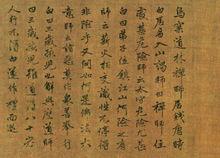 鳥窠道林禪師居錢唐時
白居易入山謁師曰禪師住
處甚危險師云太守危險尤甚
白曰弟子位鎮江山何險之有
師曰薪火相交識性不停得
非險乎又問如何是佛法大
意師云諸惡莫作衆善奉行
白云三歲孩兒也解恁麼道師
云三歲孩兒雖道得八十老
人行不得白遂作禮而退